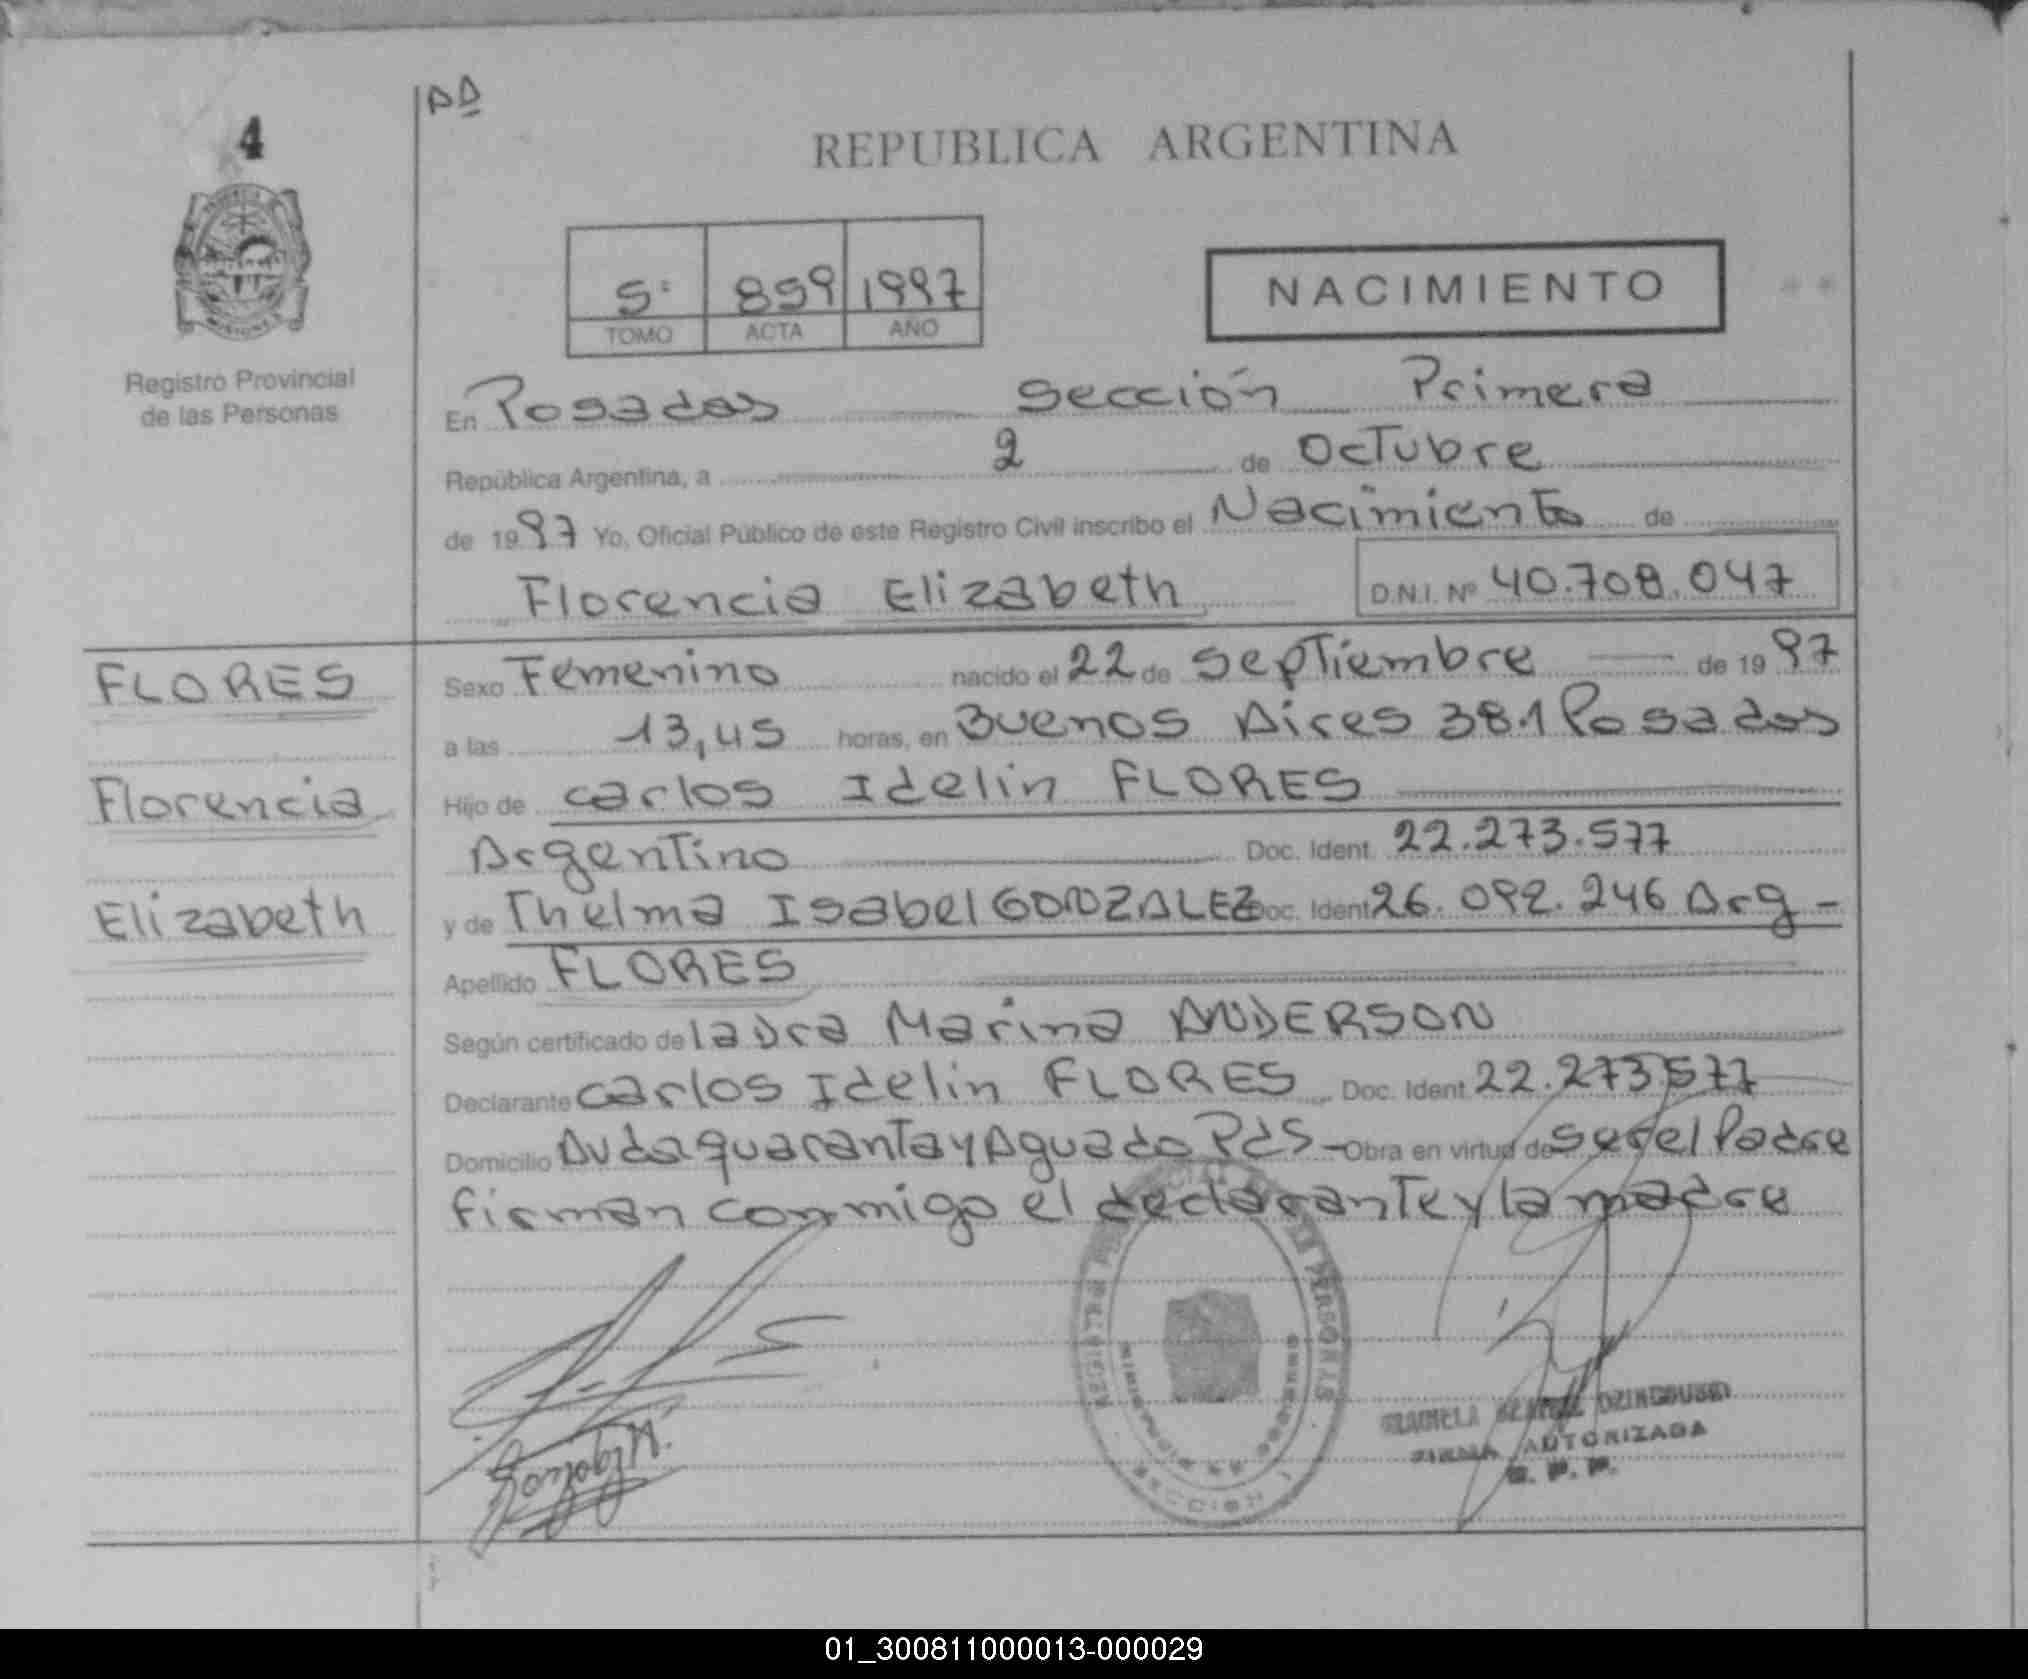 AA
4
REPUBLICA ARGENTINA
5: 859 1997
TOMO ACTA AÑO
NACIMIENTO
MISIONES
Registro Provincial
de las Personas
En Posadas Sección Primera
República Argentina, a 2 de Octubre
de 1997 Yo, Oficial Público de este Registro Civil inscribo el Nacimiento de
Florencia Elizabeth D.N.I. Nº 40.708.047
FLORES
Florencia
Elizabeth
Sexo Femenino nacido el 22 de Septiembre de 1997
a las 13,45 horas, en Buenos Aires 381 Posadas
Hijo de Carlos Idelin FLORES
Argentino Doc. Ident. 22.273.577
y de Thelma Isabel GONZALEZ Doc. Ident 26.092.246 Arg -
Apellido FLORES
Según certificado de laura Marina ANDERSON
Declarante Carlos Idelin FLORES Doc. Ident. 22.273.577
Domicilio Avdaquaranta y Aguado Pds - Obra en virtud de ser el Padre
firman conmigo el declarante y la madre
FIRMA AUTORIZADA
R. P. P.
01_300811000013-000029